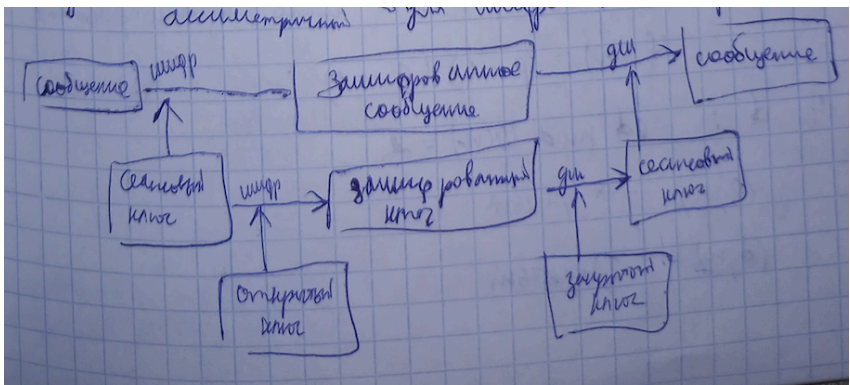 асиметричный для шифр
сообщение
шифр
Зашифрованное
сообщение
дш
сообщение
Сеансовый
ключ
шифр
зашифрованный
ключ
дш
сеансовый
ключ
открытый
ключ
закрытый
ключ